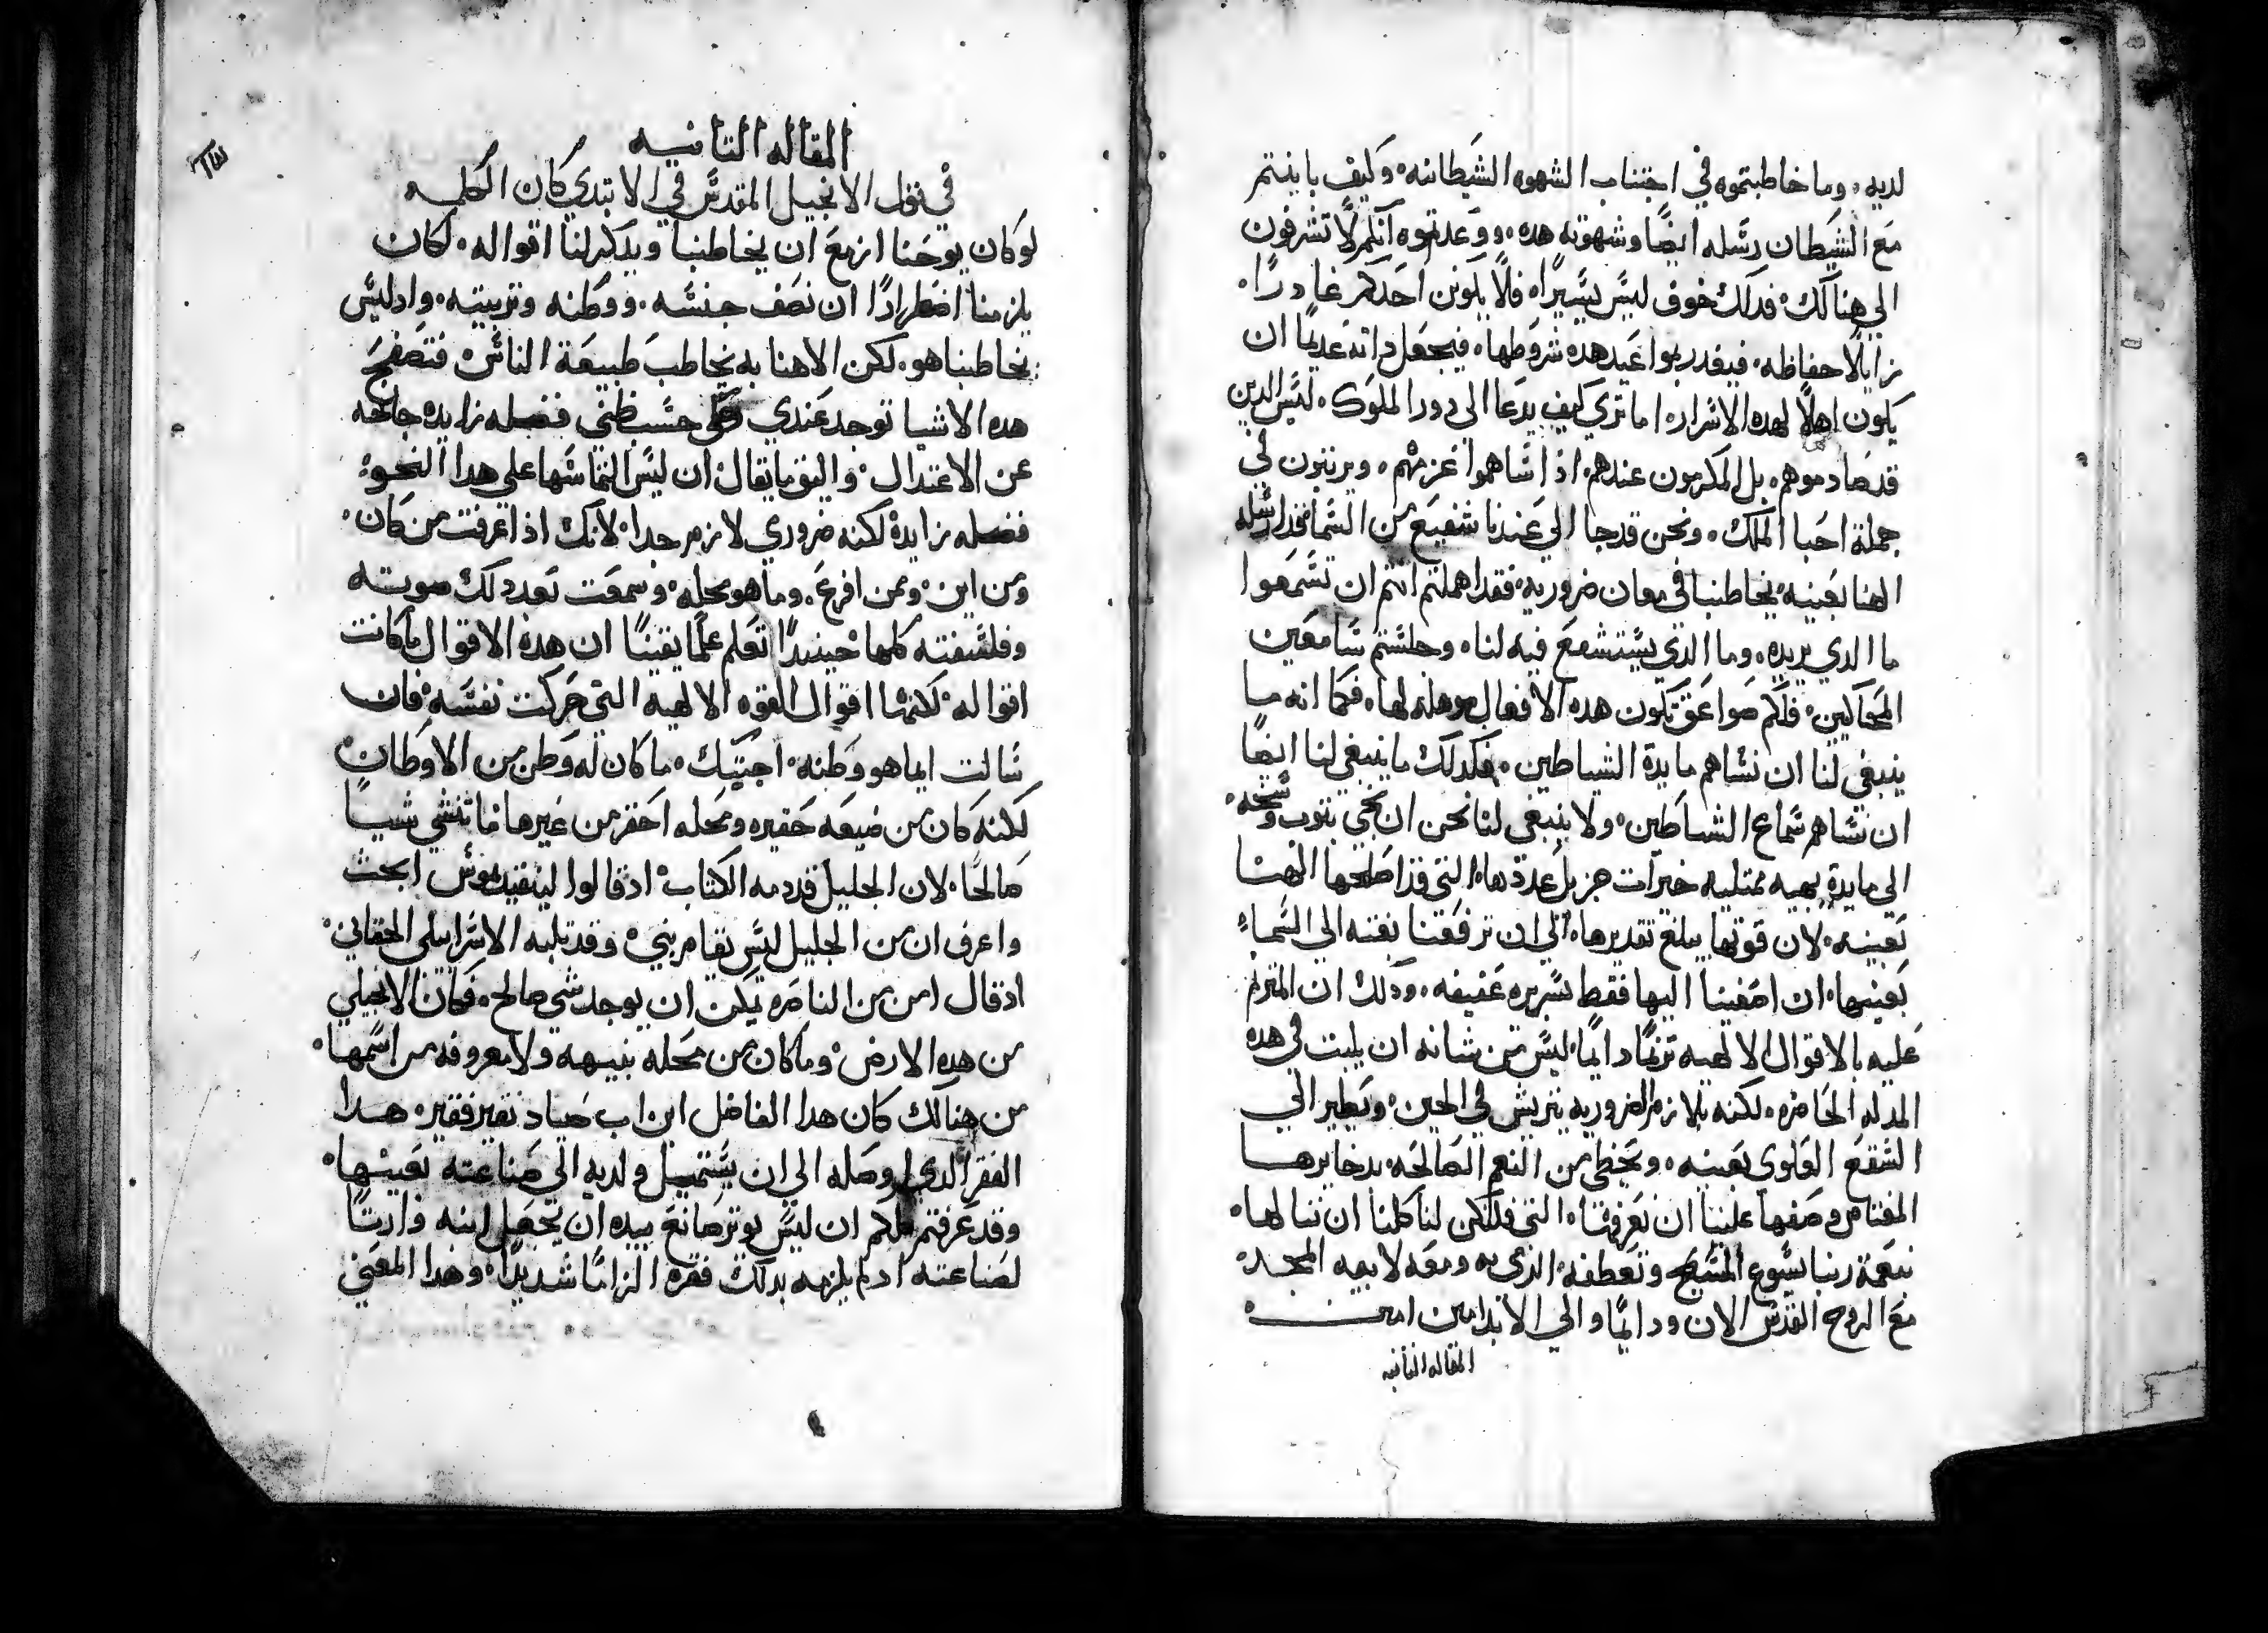 لديه، وما خاطبتموه في اجتناب الشهوه الشيطانيه، وكيف باينتم
مع الشيطان رسله ايضًا وشهوته هده، ووعدتموه انكم لا تشرفون
الي هنالك، فدلك خوف ليس يسيرًا، فلا يكونن احدكم غادرًا،
زايلًا حفاظه، فيغدر بمواعيد هده شروطها، فيجعل داته عديمًا ان
يكون اهلًا لهده الاسرار، اما تري كيف يدعا الى دور الملوك، ليس الدين
قد صادموهم، بل المكرمون عندهم، اذا ساهموا عزمهم، ويرتبون في
جملة احبا الملك، ونحن قد جا الي عندنا شفيع من السما قد ارسله
الهنا بعينه، يخاطبنا في معان ضروريه، فقد اهملتم انتم ان تسمعوا
ما الدي يريده، وما الدي يستشفع فيه لنا، وجلستم سامعين
المحاكين، فلكم صواعق تكون هده الافعال موهله لها، فكما انه ما
ينبغي لنا ان نساهم مايدة الشياطين، فكدلك ما ينبغي لنا ايضًا
ان نساهم سماع الشياطين، ولا ينبغي لنا نحن ان نجي بتوب وسخه،
الي مايدة بهيه ممتليه خيرات جزيل عددها، التي قد اصلحها الهنا
بعينه، لان قوتها يبلغ تقديرها، الي ان ترفعنا بغته الي السماء
بعينها، ان اصغينا اليها فقط بسريره عفيفه، ودلك ان المترنم
عليه بالاقوال الالهيه ترنمًا دايمًا، ليس من شانه ان يلبت في هده
المدله الحاضره، لكنه يلازم الضروريه يتريش في الحين، ويطير الي
الشقع العلوي بعينه، ويحظي من النعم الصالحه، بدخايرها
المفتاص وصفها علينا ان نعرفها، التي فلتكن لنا كلنا ان ننالها،
بنعمة ربنا يسوع المسيح وتعطفه، الذي به ومعه لابيه المجد،
مع الروح القدس الان ودايمًا والي الابد امين امين
المقاله التانيه
المقاله التانيه
في قول الانجيل المقدس في الابتدي كان الكلمه
لو كان يوحنا ازمع ان يخاطبنا ويدكر لنا اقواله، لكان
يلزمنا اضطرارًا ان نصف جنسه، ووطنه وتربيته، واد ليس
يخاطبنا هو، لكن الاهنا به يخاطب طبيعة الناس، فتصفح
هده الاشيا توجد عندي وعلي حسب ظني فضله زايده جامحه
عن الاعتدال، واليق ما يقال، ان ليس التماسها علي هدا النحو،
فضله زايده لكنه ضروري لازم جدا، لانك اذا عرفت من كان،
ومن اين، وممن افرع، وما هو محله، وسمعت بعد دلك صوته
وفلسفته كلها حينيدًا تعلم علمًا يقينًا ان هذه الاقوال ما كانت
اقواله، لكنها اقوال القوه الالهيه التي حركت نفسه، فان
سالت ايما هو وطنه، اجيبك، ما كان له وطن من الاوطان
لكنه كان من ضيعه حقيره ومحله احقر من غيرها ما تنشي شيًا
صالحًا، لان الجليل قد دمه الكتاب، اد قالوا لينقيديموس ابحث
واعرف ان من الجليل ليس يقام بني، وقد تلبه الاسراييلي الحقاني،
اد قال امن من الناصره يمكن ان يوجد شي صالح، فكان الانجيلي
من هده الارض، وما كان من محله نبيهه ولا معروفه من اسمها،
من هنالك كان هدا الفاضل ابن اب صياد نقير فقير، هدا
الفقر الدي اوصله الي ان يستميل ولديه الي صناعته بعينها،
وقد عرفتم كلكم ان ليس يوتر صانع بيده ان يجعل ابنه وارتًا
لصناعته اد لم يلزمه بدلك فقره الزامًا شديدًا، وهدا المعني